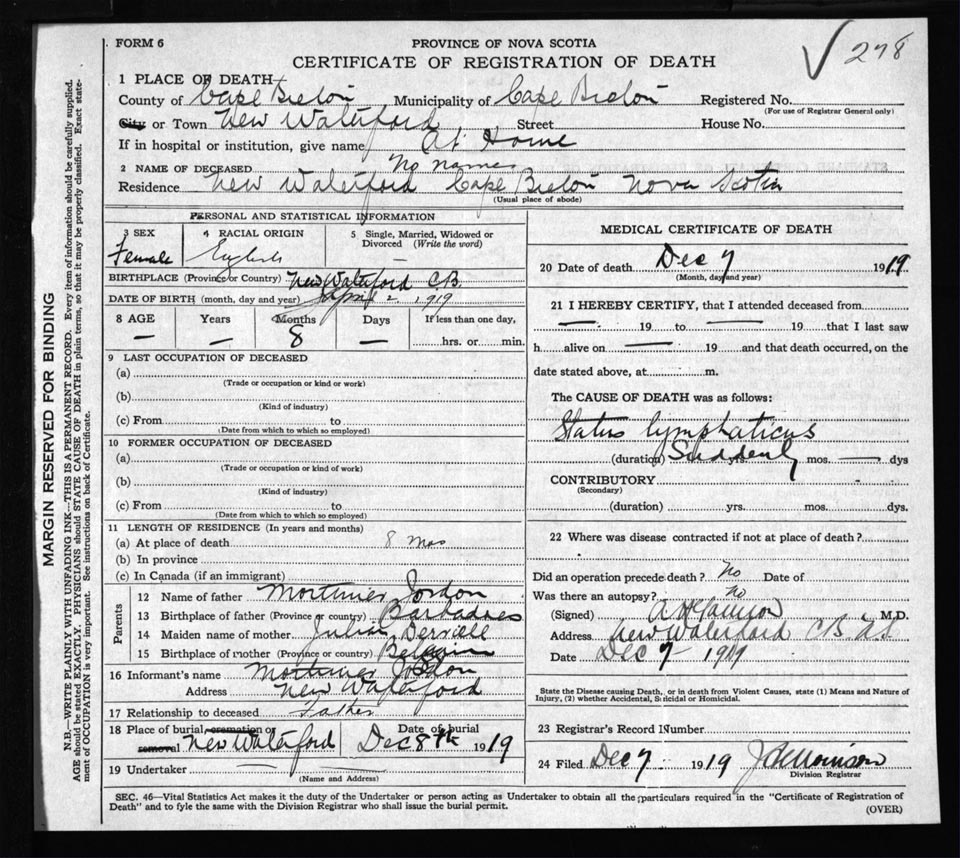 FORM 6
PROVINCE OF NOVA SCOTIA
278
CERTIFICATE OF REGISTRATION OF DEATH
1 PLACE OF DEATH
County of Cape Breton Municipality of Cape Breton Registered No.
(For use of Registrar General only)
City or Town New Waterford Street House No.
If in hospital or institution, give name At Home
2 NAME OF DECEASED No name
Residence New Waterford Cape Breton Nova Scotia
(Usual place of abode)
PERSONAL AND STATISTICAL INFORMATION
3 SEX 4 RACIAL ORIGIN 5 Single, Married, Widowed or Divorced (Write the word)
Female English —
BIRTHPLACE (Province or Country) New Waterford C.B.
DATE OF BIRTH (month, day and year) April 2 1919
8 AGE Years Months Days If less than one day,
— — 8 — hrs. or min.
9 LAST OCCUPATION OF DECEASED
(a)
(Trade or occupation or kind or work)
(b)
(Kind of industry)
(c) From to
(Date from which to which so employed)
10 FORMER OCCUPATION OF DECEASED
(a)
(Trade or occupation or kind of work)
(b)
(Kind of industry)
(c) From to
(Date from which to which so employed)
11 LENGTH OF RESIDENCE (In years and months)
(a) At place of death 8 Mos
(b) In province
(c) In Canada (if an immigrant)
Parents
12 Name of father Mortimer Jordon
13 Birthplace of father (Province or country) Barbadoes
14 Maiden name of mother Julia
15 Birthplace of mother (Province or country) Belgium
16 Informant's name Mortimer Jordon
Address New Waterford
17 Relationship to deceased Father
18 Place of burial, cremation or removal New Waterford Date of burial Dec 8th 1919
19 Undertaker
(Name and Address)
MEDICAL CERTIFICATE OF DEATH
20 Date of death Dec 7 1919
(Month, day and year)
21 I HEREBY CERTIFY, that I attended deceased from
— 19 to — 19 that I last saw
h alive on — 19 and that death occurred, on the
date stated above, at m.
The CAUSE OF DEATH was as follows:
Status lymphaticus
(duration) Suddenly yrs. mos. — dys
CONTRIBUTORY
(Secondary)
(duration) yrs. mos. dys.
22 Where was disease contracted if not at place of death?
Did an operation precede death? No Date of
Was there an autopsy? no
(Signed) M.D.
Address New Waterford C.B. N.S.
Date Dec 7 1919
State the Disease causing Death, or in death from Violent Causes, state (1) Means and Nature of
Injury, (2) whether Accidental, Suicidal or Homicidal.
23 Registrar's Record Number
24 Filed Dec 7 1919
Division Registrar
SEC. 46—Vital Statistics Act makes it the duty of the Undertaker or person acting as Undertaker to obtain all the particulars required in the "Certificate of Registration of
Death" and to fyle the same with the Division Registrar who shall issue the burial permit.
(OVER)
MARGIN RESERVED FOR BINDING
N.B.—WRITE PLAINLY WITH UNFADING INK—THIS IS A PERMANENT RECORD. Every item of information should be carefully supplied.
AGE should be stated EXACTLY. PHYSICIANS should STATE CAUSE OF DEATH in plain terms, so that it may be properly classified. Exact state-
ment of OCCUPATION is very important. See instructions on back of Certificate.